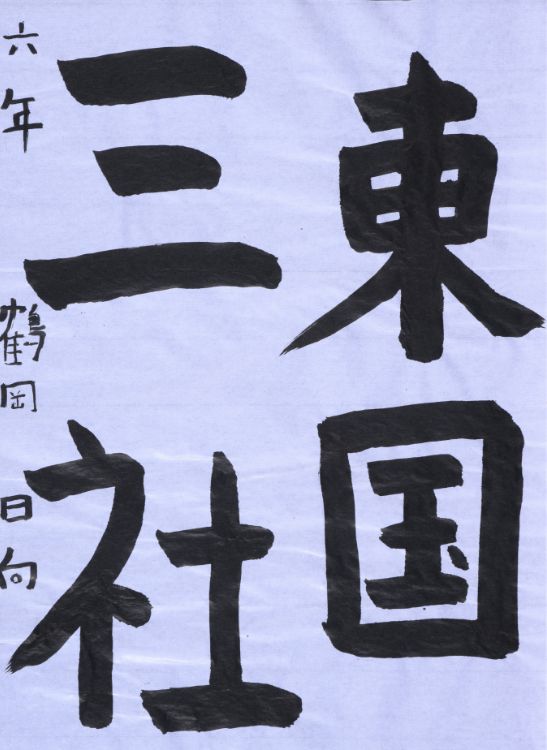 東国
三社
六年 鶴岡 日向